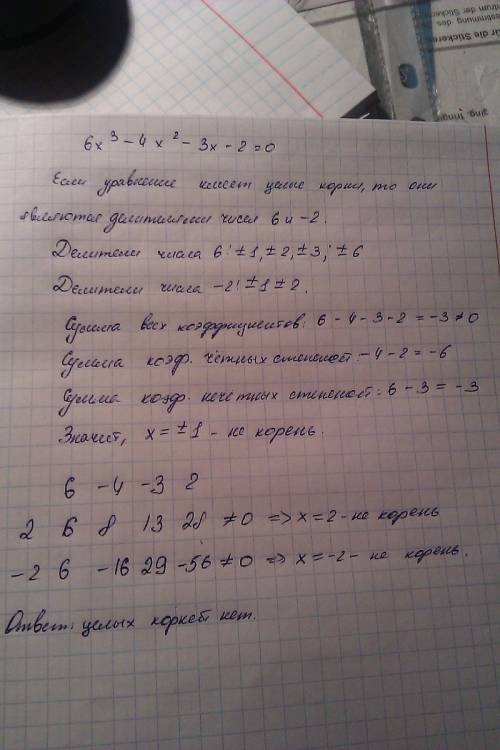 6x³ - 4x² - 3x - 2 = 0
Если уравнение имеет целые корни, то они
являются делителями чисел 6 и -2.
Делители числа 6: ±1, ±2, ±3; ±6
Делители числа -2: ±1 ±2.
Сумма всех коэффициентов: 6 - 4 - 3 - 2 = -3 ≠ 0
Сумма коэф. чётных степеней: -4 - 2 = -6
Сумма коэф. нечётных степеней: 6 - 3 = -3
Значит, x = ±1 - не корень.
6 -4 -3 2
2 6 8 13 28 ≠ 0 => x = 2 - не корень
-2 6 -16 29 -56 ≠ 0 => x = -2 - не корень.
Ответ: целых корней нет.
für die Stickere